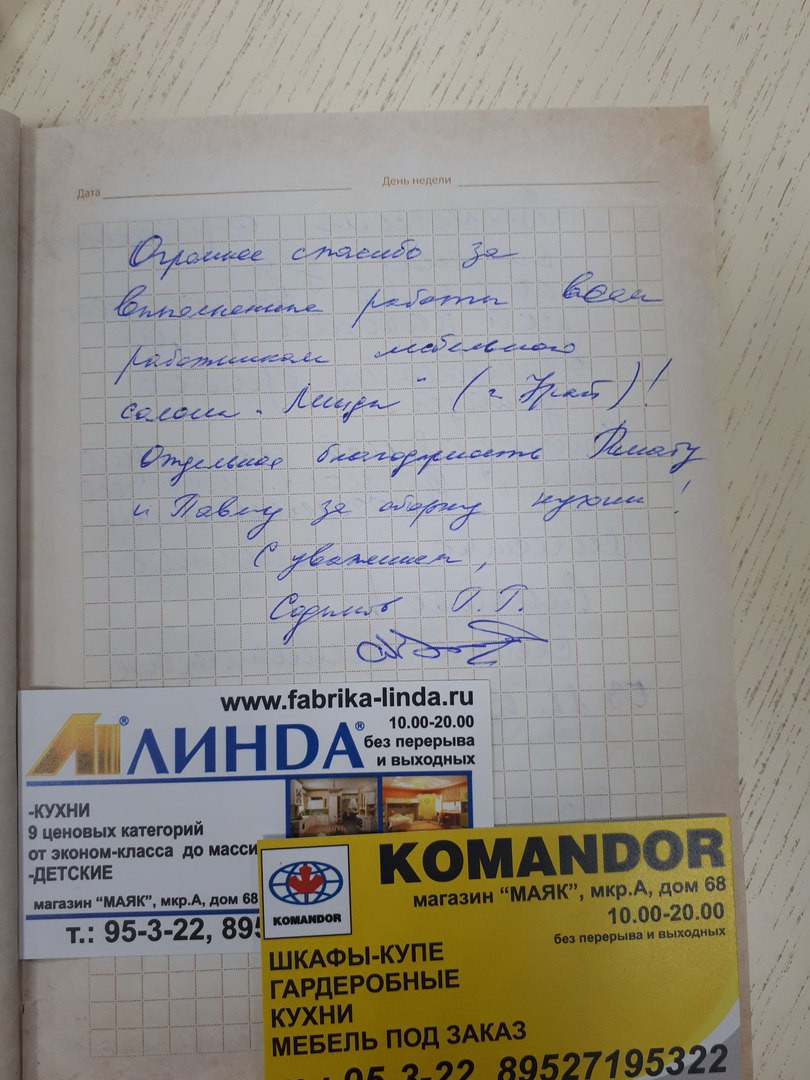 Дата День недели
Огромное спасибо за
выполненные работы всем
работникам мебельного
салона "Линда" (г. Урай)!
Отдельная благодарность Ринату
и Павлу за сборку кухни!
С уважением,
www.fabrika-linda.ru
ЛИНДА®
10.00-20.00
без перерыва
и выходных
-КУХНИ
9 ценовых категорий
от эконом-класса до масси
-ДЕТСКИЕ
магазин "МАЯК", мкр.А, дом 68
т.: 95-3-22, 895
KOMANDOR
KOMANDOR
магазин "МАЯК", мкр.А, дом 68
10.00-20.00
без перерыва и выходных
ШКАФЫ-КУПЕ
ГАРДЕРОБНЫЕ
КУХНИ
МЕБЕЛЬ ПОД ЗАКАЗ
95-3-22, 89527195322